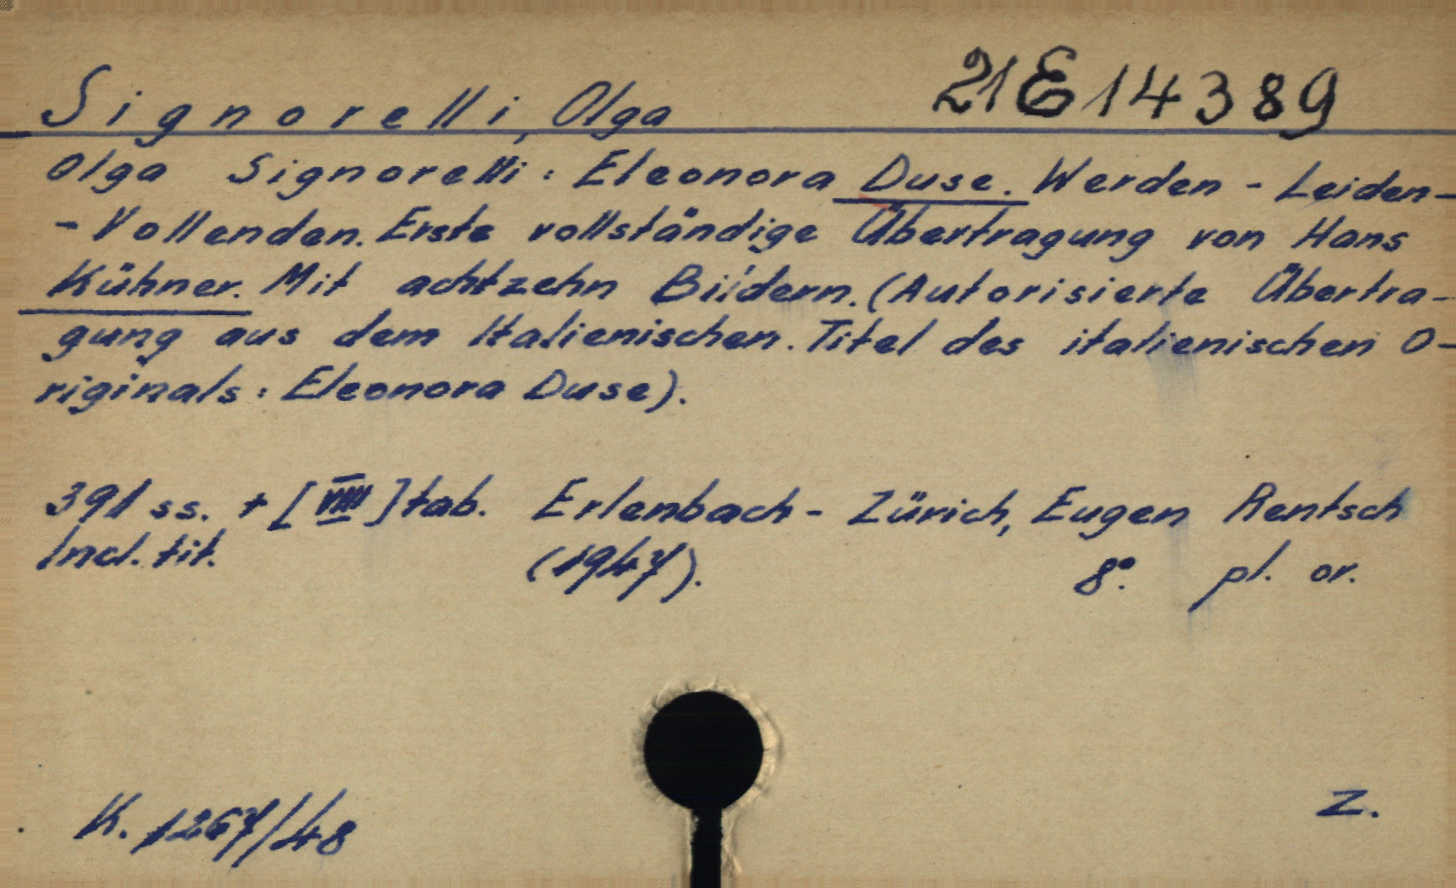 Signorelli, Olga 21E14389
Olga Signorelli: Eleonora Duse. Werden - Leiden-
- Vollenden. Erste vollständige Übertragung von Hans
Kühner. Mit achtzehn Bildern. (Autorisierte Übertra-
gung aus dem Italienischen. Titel des italienischen O-
riginals: Eleonora Duse).
391 ss. + [VIIII] tab. Erlenbach - Zürich, Eugen Rentsch
Incl. tit. (1947). 8°. pl. or.
K. 1267/48 Z.